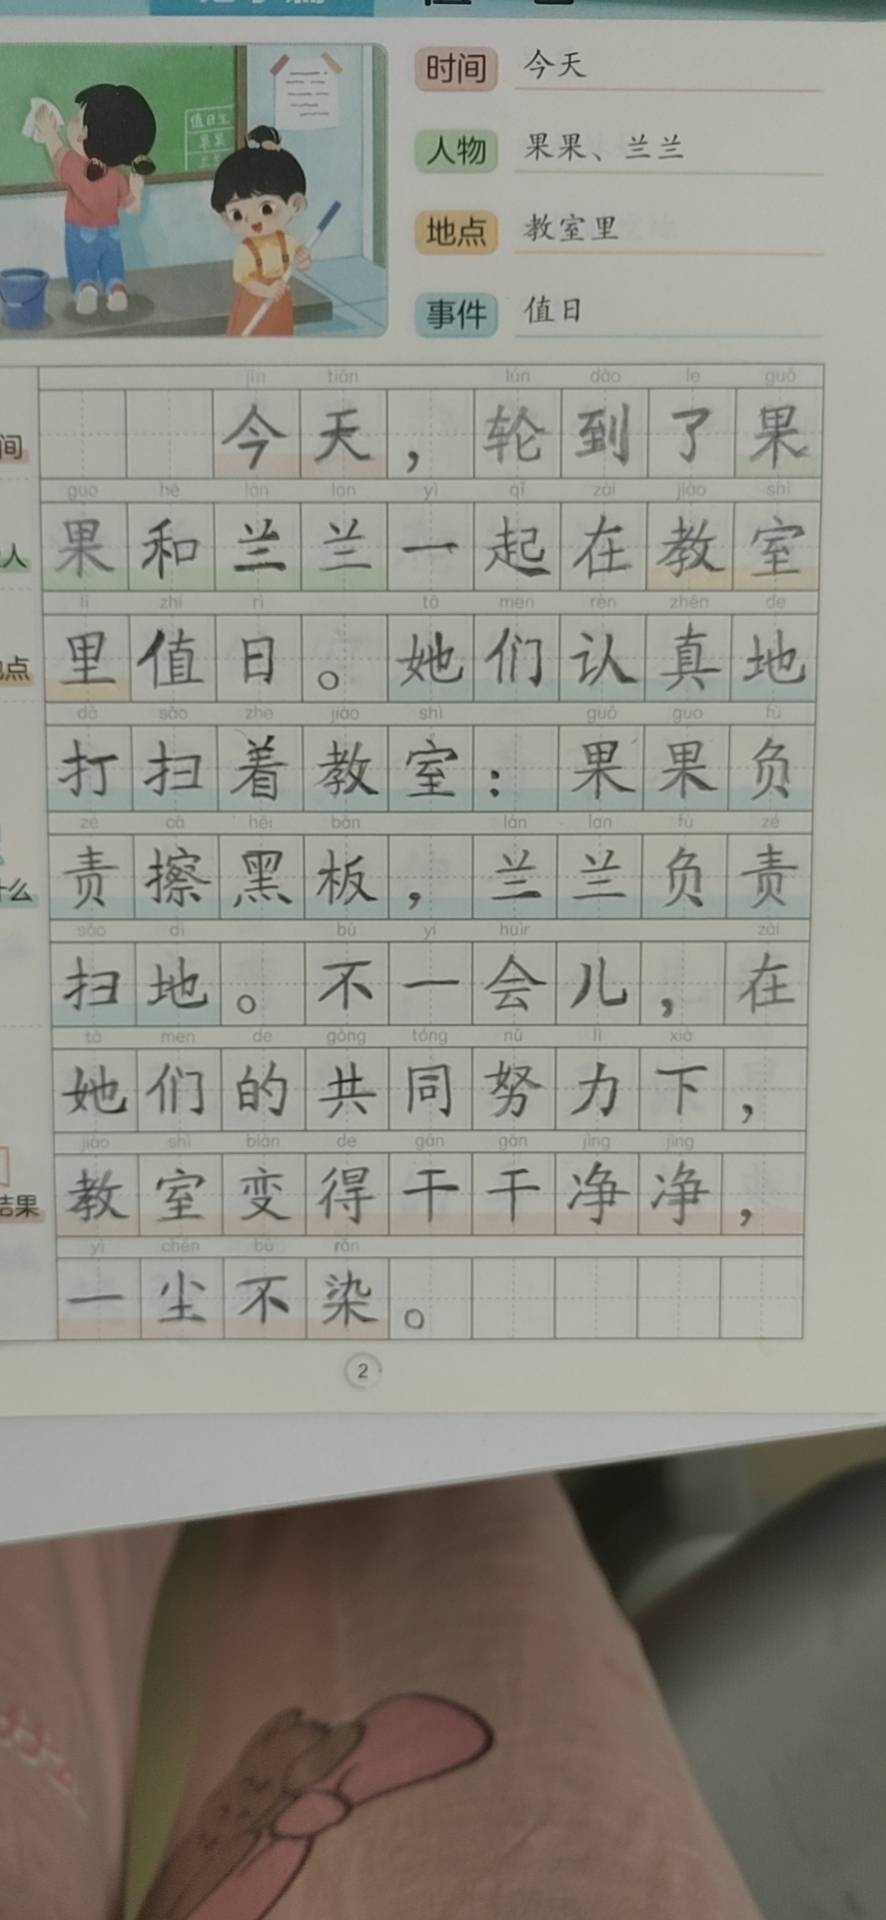 时间 今天
人物 果果、兰兰
地点 教室里
事件 值日
值日生
果果
jīn tiān lún dào le guǒ
今天，轮到了果
guo hé lán lan yì qǐ zài jiào shì
果和兰兰一起在教室
lǐ zhí rì tā men rèn zhēn de
里值日。她们认真地
dǎ sǎo zhe jiào shì guǒ guo fù
打扫着教室：果果负
zé cā hēi bǎn lán lan fù zé
责擦黑板，兰兰负责
sǎo dì bù yí huìr zài
扫地。不一会儿，在
tā men de gòng tóng nǔ lì xià
她们的共同努力下，
jiào shì biàn de gān gān jìng jìng
教室变得干干净净，
yì chén bù rǎn
一尘不染。
间
人
地点
什么
结果
2